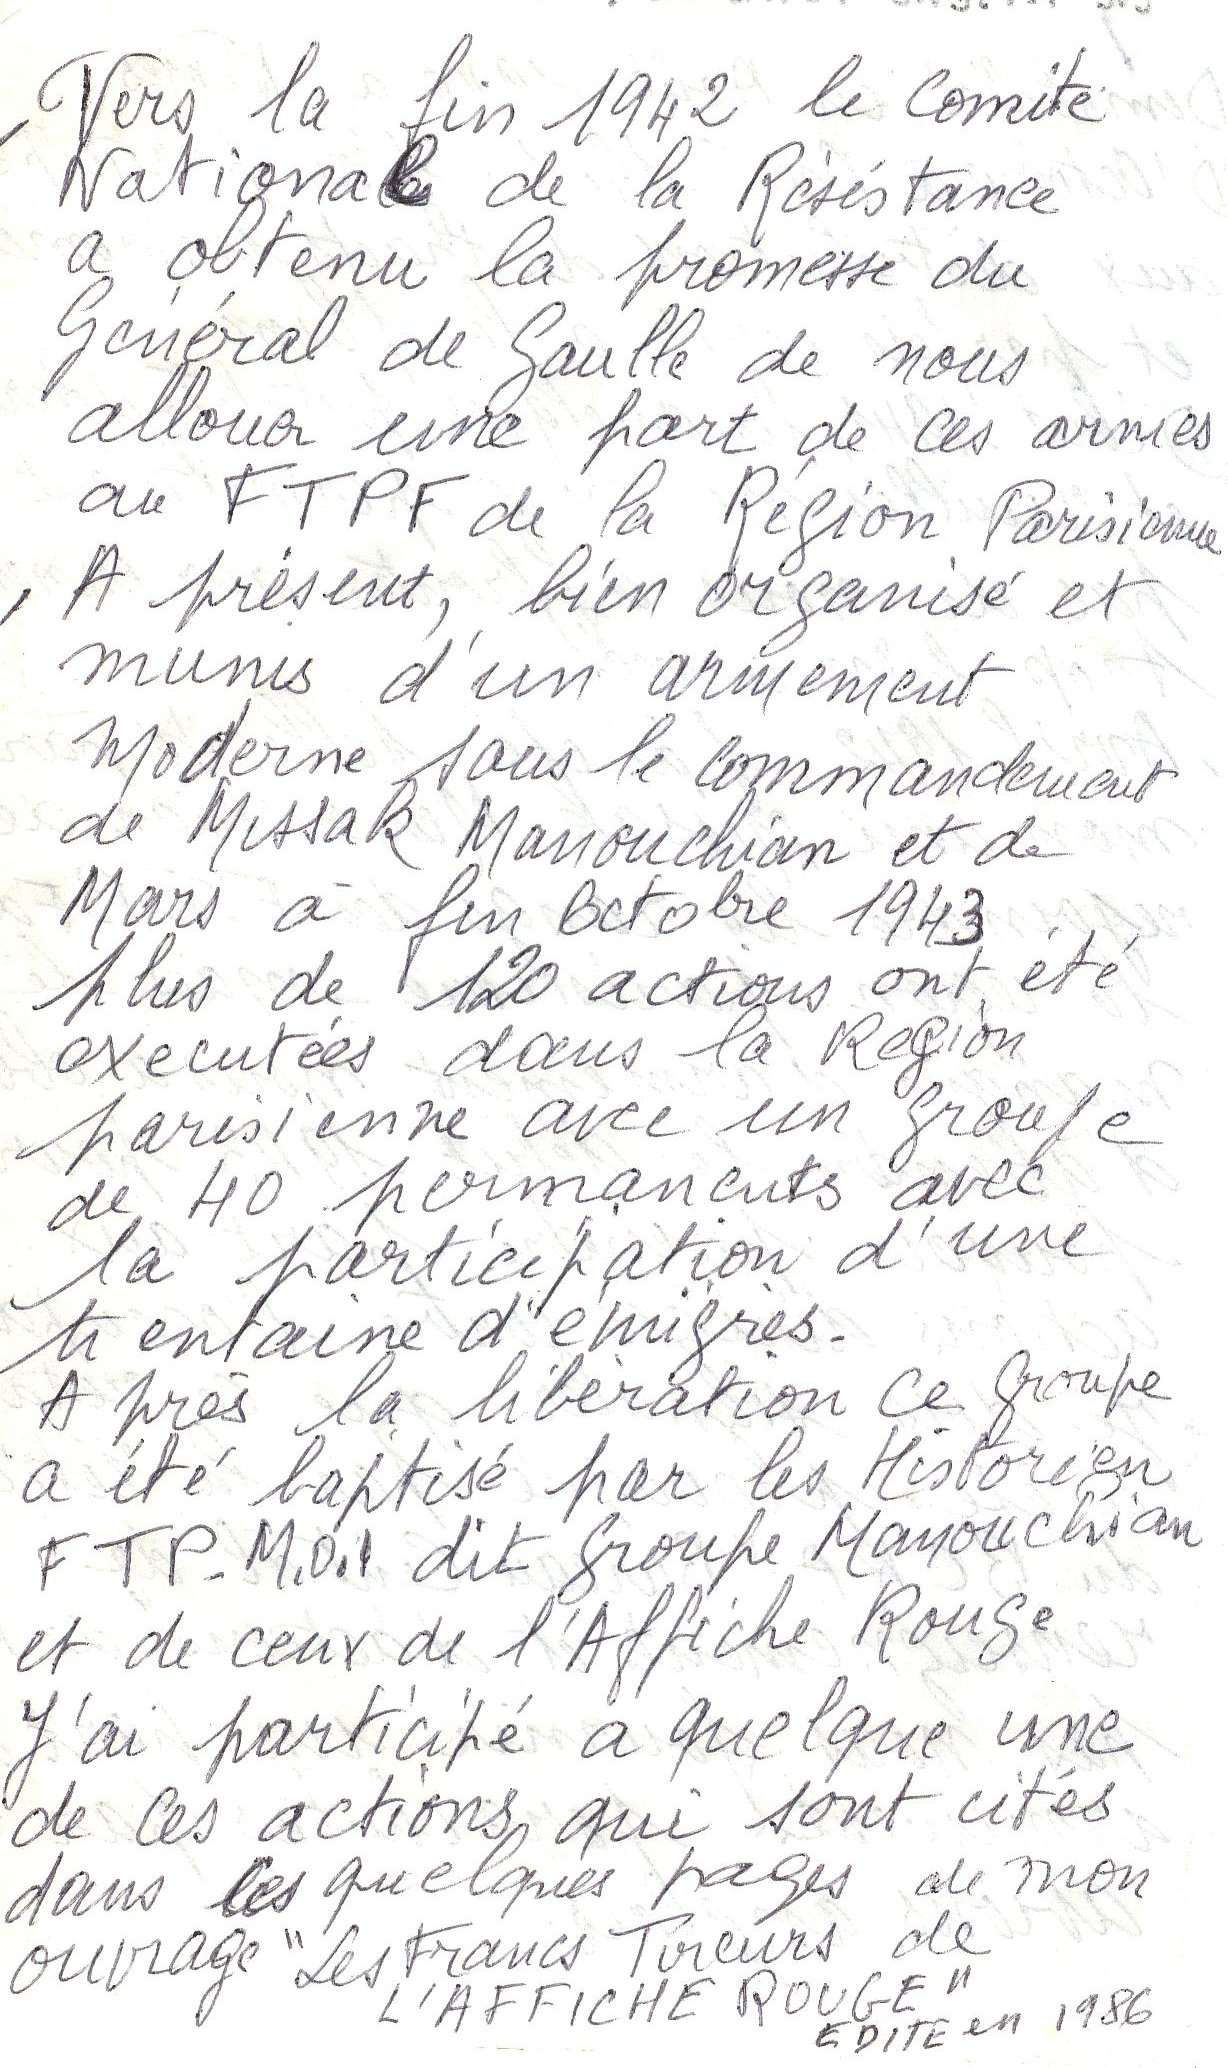 Vers la fin 1942 le Comité
National de la Résistance
a obtenu la promesse du
Général de Gaulle de nous
allouer une part de ces armes
au FTPF de la Région Parisienne
A présent, bien organisé et
munis d'un armement
moderne sous le commandement
de Missak Manouchian et de
Mars à fin Octobre 1943
plus de 120 actions ont été
executées dans la Région
parisienne avec un groupe
de 40 permanents avec
la participation d'une
trentaine d'émigrés.
Après la libération ce groupe
a été baptisé par les Historien
FTP-M.O.I dit groupe Manouchian
et de ceux de l'Affiche Rouge
J'ai participé a quelque une
de ces actions qui sont cités
dans les quelques pages de mon
ouvrage "Les Francs Tireurs de
L'AFFICHE ROUGE"
EDITE en 1986